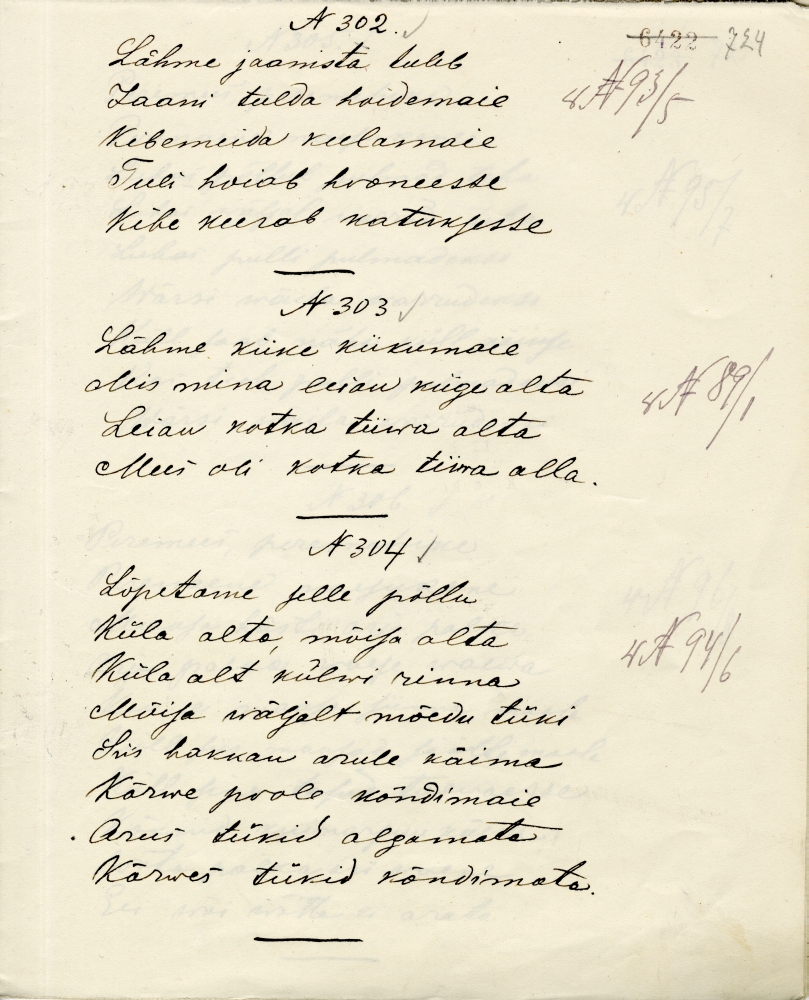 N 302.
6422 724
Lähme jaamsta tuleb
Jaani tulda hoidemaie
N 93/5
Kibemeida keelamaie
Tuli hoiab hooneesse
Kibe keerab katuksesse
N 303
Lähme kiike kiikumaie
Mis mina leian kiige alta
N 89/1
Leian kotka tiiwa alta
Mees oli kotka tiiwa alla.
N 304
Lõpetame selle põllu
Küla alta, mõisa alta
N 94/6
Küla alt külwi rinna
Mõisa wäljalt mõedu tüki
Siis hakkan arule käima
Kõrwe poole kõndimaie
Arus tükid algamata
Kõrwes tükid kõndimata.